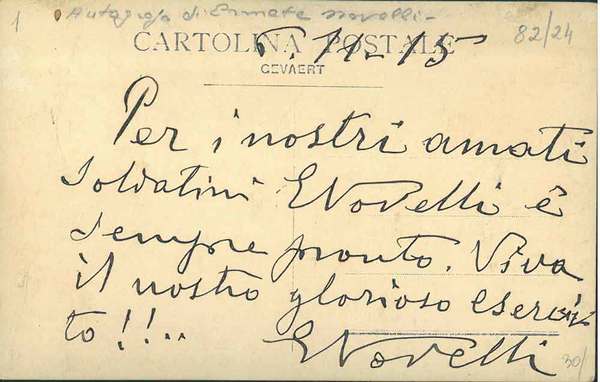 1
Autografo di Ermete Novelli-
CARTOLINA POSTALE
82/24
11-15
GEVAERT
Per i nostri amati
soldatini ENovelli è
sempre pronto. Viva
il nostro glorioso Eserci-
to!!..
ENovelli
30/